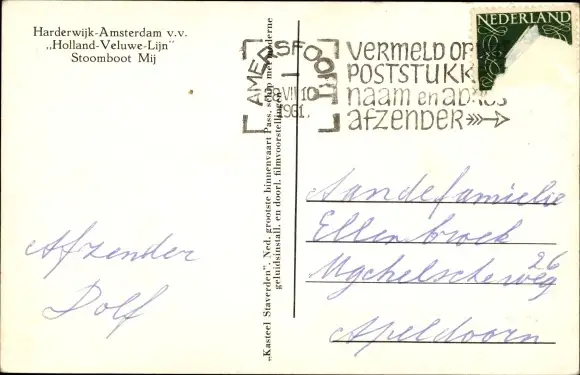 Harderwijk-Amsterdam v.v.
„Holland-Veluwe-Lijn"
Stoomboot Mij
NEDERLAND
AMERSFOORT
VII 10
1961.
VERMELD OP
POSTSTUKK
naam en ad
afzender
„Kasteel Staverden". Ned. grootste binnenvaart Pass. schip met moderne
geluidsinstall. en doorl. filmvoorstellingen
Aan de familie
Ellenbroek
Ugchelscheweg 26
Apeldoorn
Afzender
Dolf